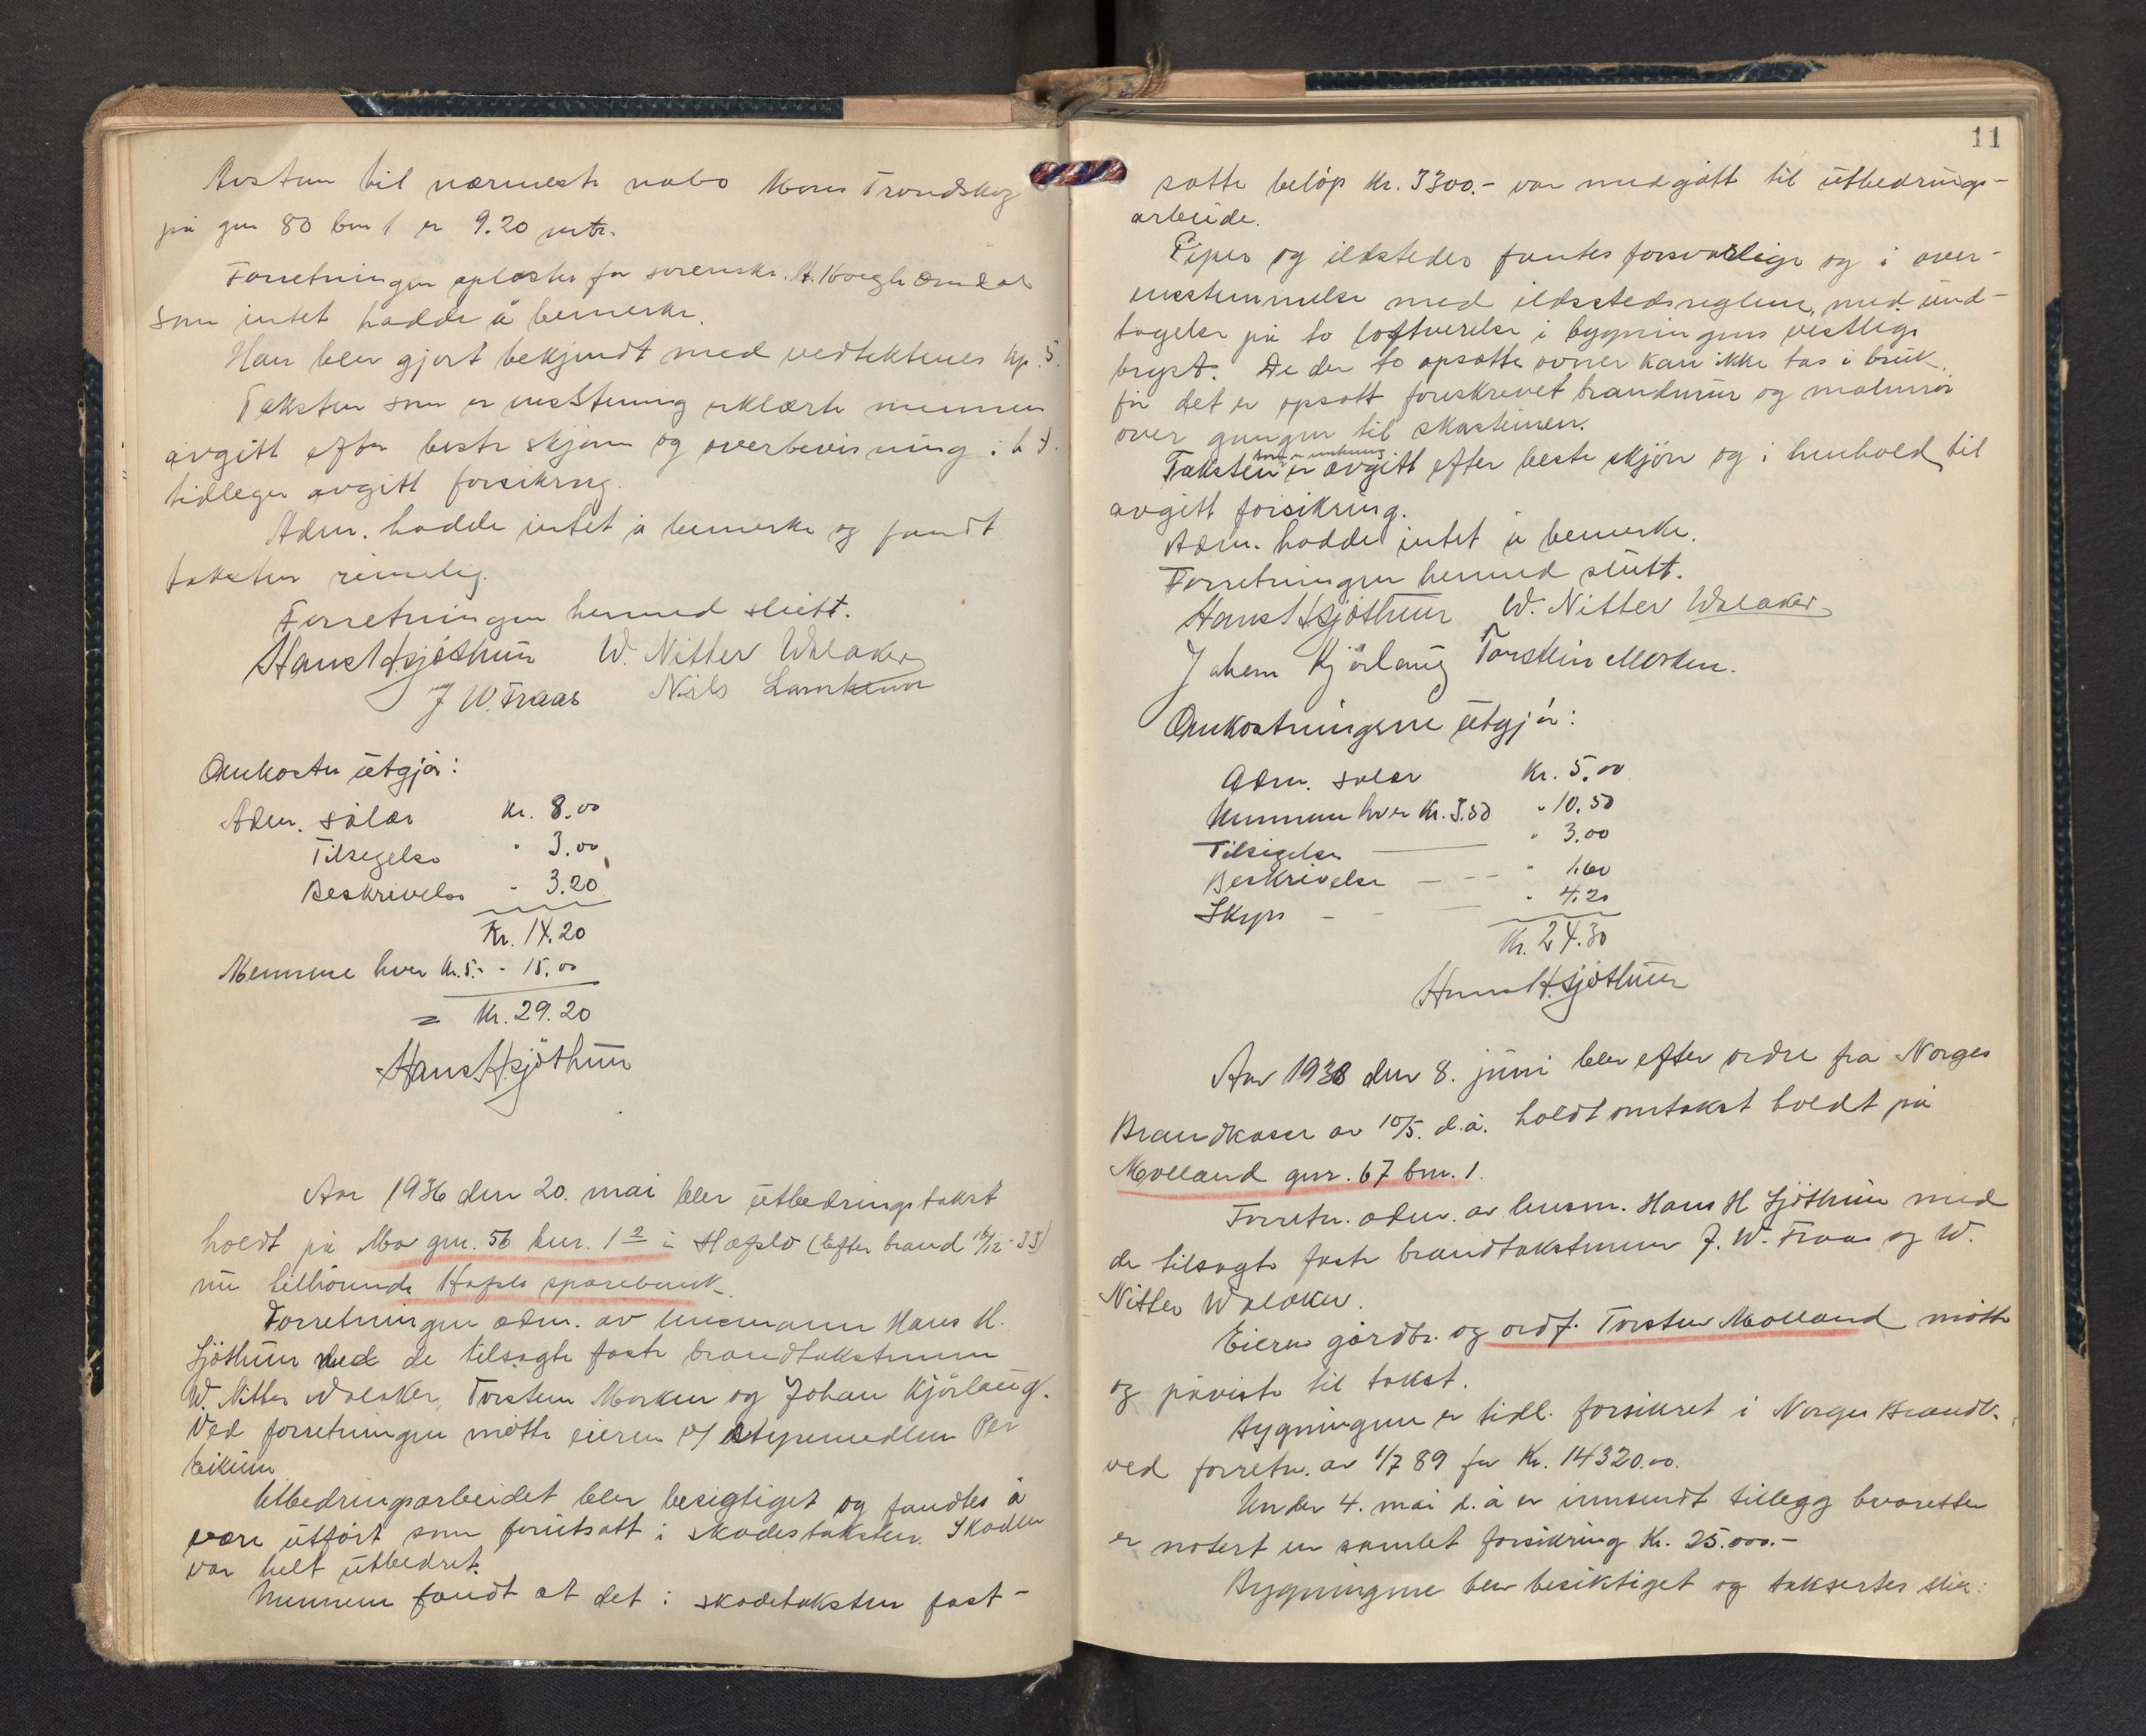 Avstan til nærmeste nabo Mons Trondskog
på gnr 80 bnr 1 er 9.20 mtr.
Forretningen oplæstes for sorenskr.
som intet hadde å bemerke.
Han blev gjort bekjendt med vedtektenes kp. 5.
Taksten som er enstemmig erklærte mennene
avgitt efter beste skjønn og overbevisning i h. t.
tidligere avgitt forsikring.
Adm. hadde intet å bemerke og fandt
taksten rimelig.
Forretningen hermed slutt.
Hans H. Sjøthun W. Nitter Walaker
J W. Fraas Nils
Omkostn utgjør:
Adm. salær Kr. 8.00
Tilsigelse " 3.00
Beskrivelse " 3.20
Kr. 14.20
Mennene hver Kr. 5.- - 15.00
= Kr. 29.20
Hans H. Sjøthun
Aar 1936 den 20. mai blev utbedringstakst
holdt på Mo gnr. 56 bnr. 1 2 i Hafslo (Efter brand 16/12-35)
nu tilhørende Hafslo sparebank.
Forretningen adm. av lensmann Hans H.
Sjøthun med de tilsagte faste brandtakstmenn
W. Nitter Walaker, Torstein Morken og Johan Kjørlaug.
Ved forretningen møtte eieren v/ styremedlem Per
Eikum
Utbedringsarbeidet blev besigtiget og fandtes å
være utført som forutsatt i skadestaksten. Skaden
var helt utbedret.
Mennene fandt at det i skadetaksten fast-
11
satte beløp Kr. 3300.- var medgått til utbedrings-
arbeide.
Piper og ildsteder fantes forsvarlige og i over-
ensstemmelse med ildstedsreglene, med und-
tagelse på to loftværelse i bygningens vestlige
bryst. De der to opsatte ovner kan ikke tas i bruk
før det er opsatt foreskrevet brandmur og
over gangen til skorsteinen.
som er enstemmig
Taksten er avgitt efter beste skjøn og i henhold til
avgitt forsikring.
Adm. hadde intet å bemerke.
Forretningen hermed slutt.
Hans H Sjøthun W. Nitter Walaker
Johan Kjörlaug Torstein Morken.
Omkostningene utgjör:
Adm. salær Kr. 5.00
Mennene hver Kr. 3.50 " 10.50
Tilsigelse " 3.00
Beskrivelse " 1.60
Skyss " 4.20
Kr. 24.30
Hans H. Sjøthun
Aar 1938 den 8. juni blev efter ordre fra Norges
Brandkasse av 10/5. d.å. holdt omtakst holdt på
Molland gnr. 67 bnr. 1.
Forretn. adm. av lensm. Hans H Sjøthun med
de tilsagte faste brandtakstmenn J. W. Fraas og W.
Nitter Walaker.
Eieren gårdbr. og ordf. Torstein Molland møtte
og påviste til takst.
Bygningene er tidl. forsikret i Norges Brandk.
ved forretn. av 1/7 89 for Kr. 14320.00.
Under 4. mai d.å er innsendt tillegg hvoretter
er notert en samlet forsikring Kr. 25.000.-
Bygningene blev besiktiget og taksertes slik: